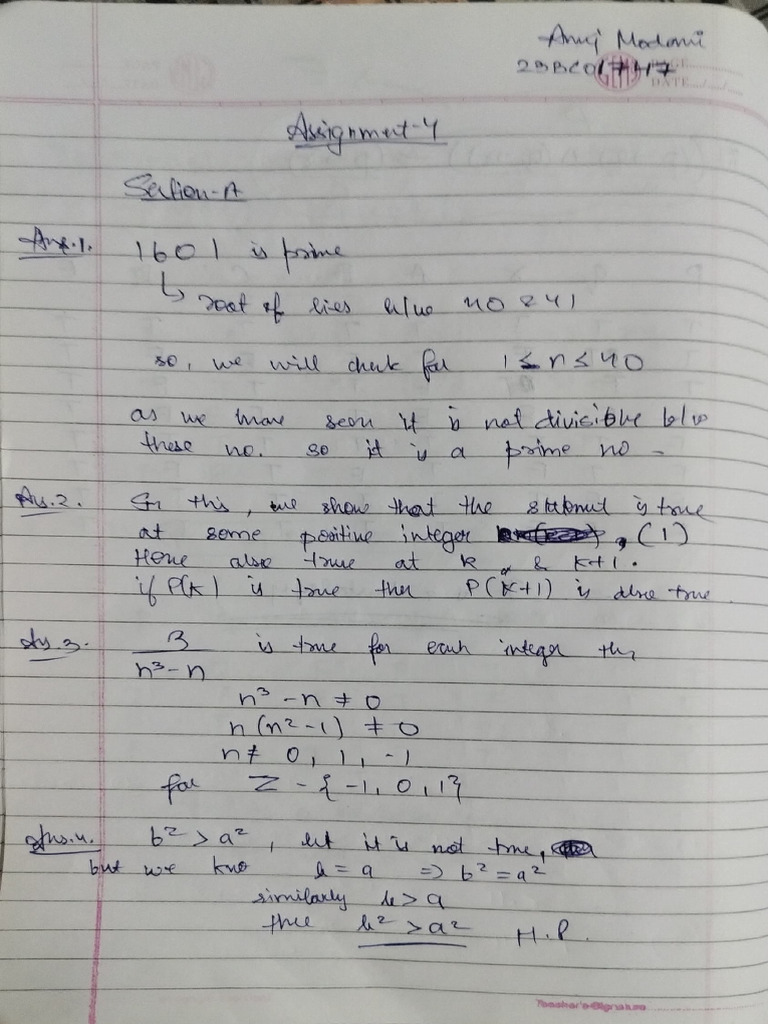 Anuj Madani
23BC01747
PAGE
DATE
Assignment-4
Section-A
Ans.1. 1601 is prime
↳ root of lies b/w 40 & 41
so, we will check for 1 ≤ n ≤ 40
as we have seen it is not divisible b/w
these no. so it is a prime no -
Ans.2. In this, we show that the statement is true
at some positive integer , (1)
Hence also true at k & k+1.
if P(k) is true then P(k+1) is also true
Ans.3. 3 / n³-n is true for each integer
n³ - n ≠ 0
n(n²-1) ≠ 0
n ≠ 0, 1, -1
for Z - {-1, 0, 1}
Ans.4. b² > a², let it is not true,
but we know b = a ⇒ b² = a²
similarly b > a
then b² > a² H.P.